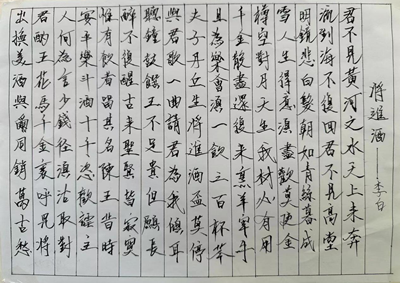 将進酒——李白
君不見黃河之水天上来奔
流到海不復回君不見高堂
明鏡悲白髮朝如青絲暮成
雪人生得意須盡歡莫使金
樽空對月天生我材必有用
千金散盡還復来烹羊宰牛
且為樂會須一飲三百杯岑
夫子丹丘生将進酒盃莫停
與君歌一曲請君為我傾耳
聽鐘鼓饌玉不足貴但願長
醉不復醒古来聖賢皆寂寞
惟有飲者留其名陳王昔時
宴平樂斗酒十千恣歡謔主
人何為言少錢徑須沽取對
君酌五花馬千金裘呼兒将
出換美酒與爾同銷萬古愁